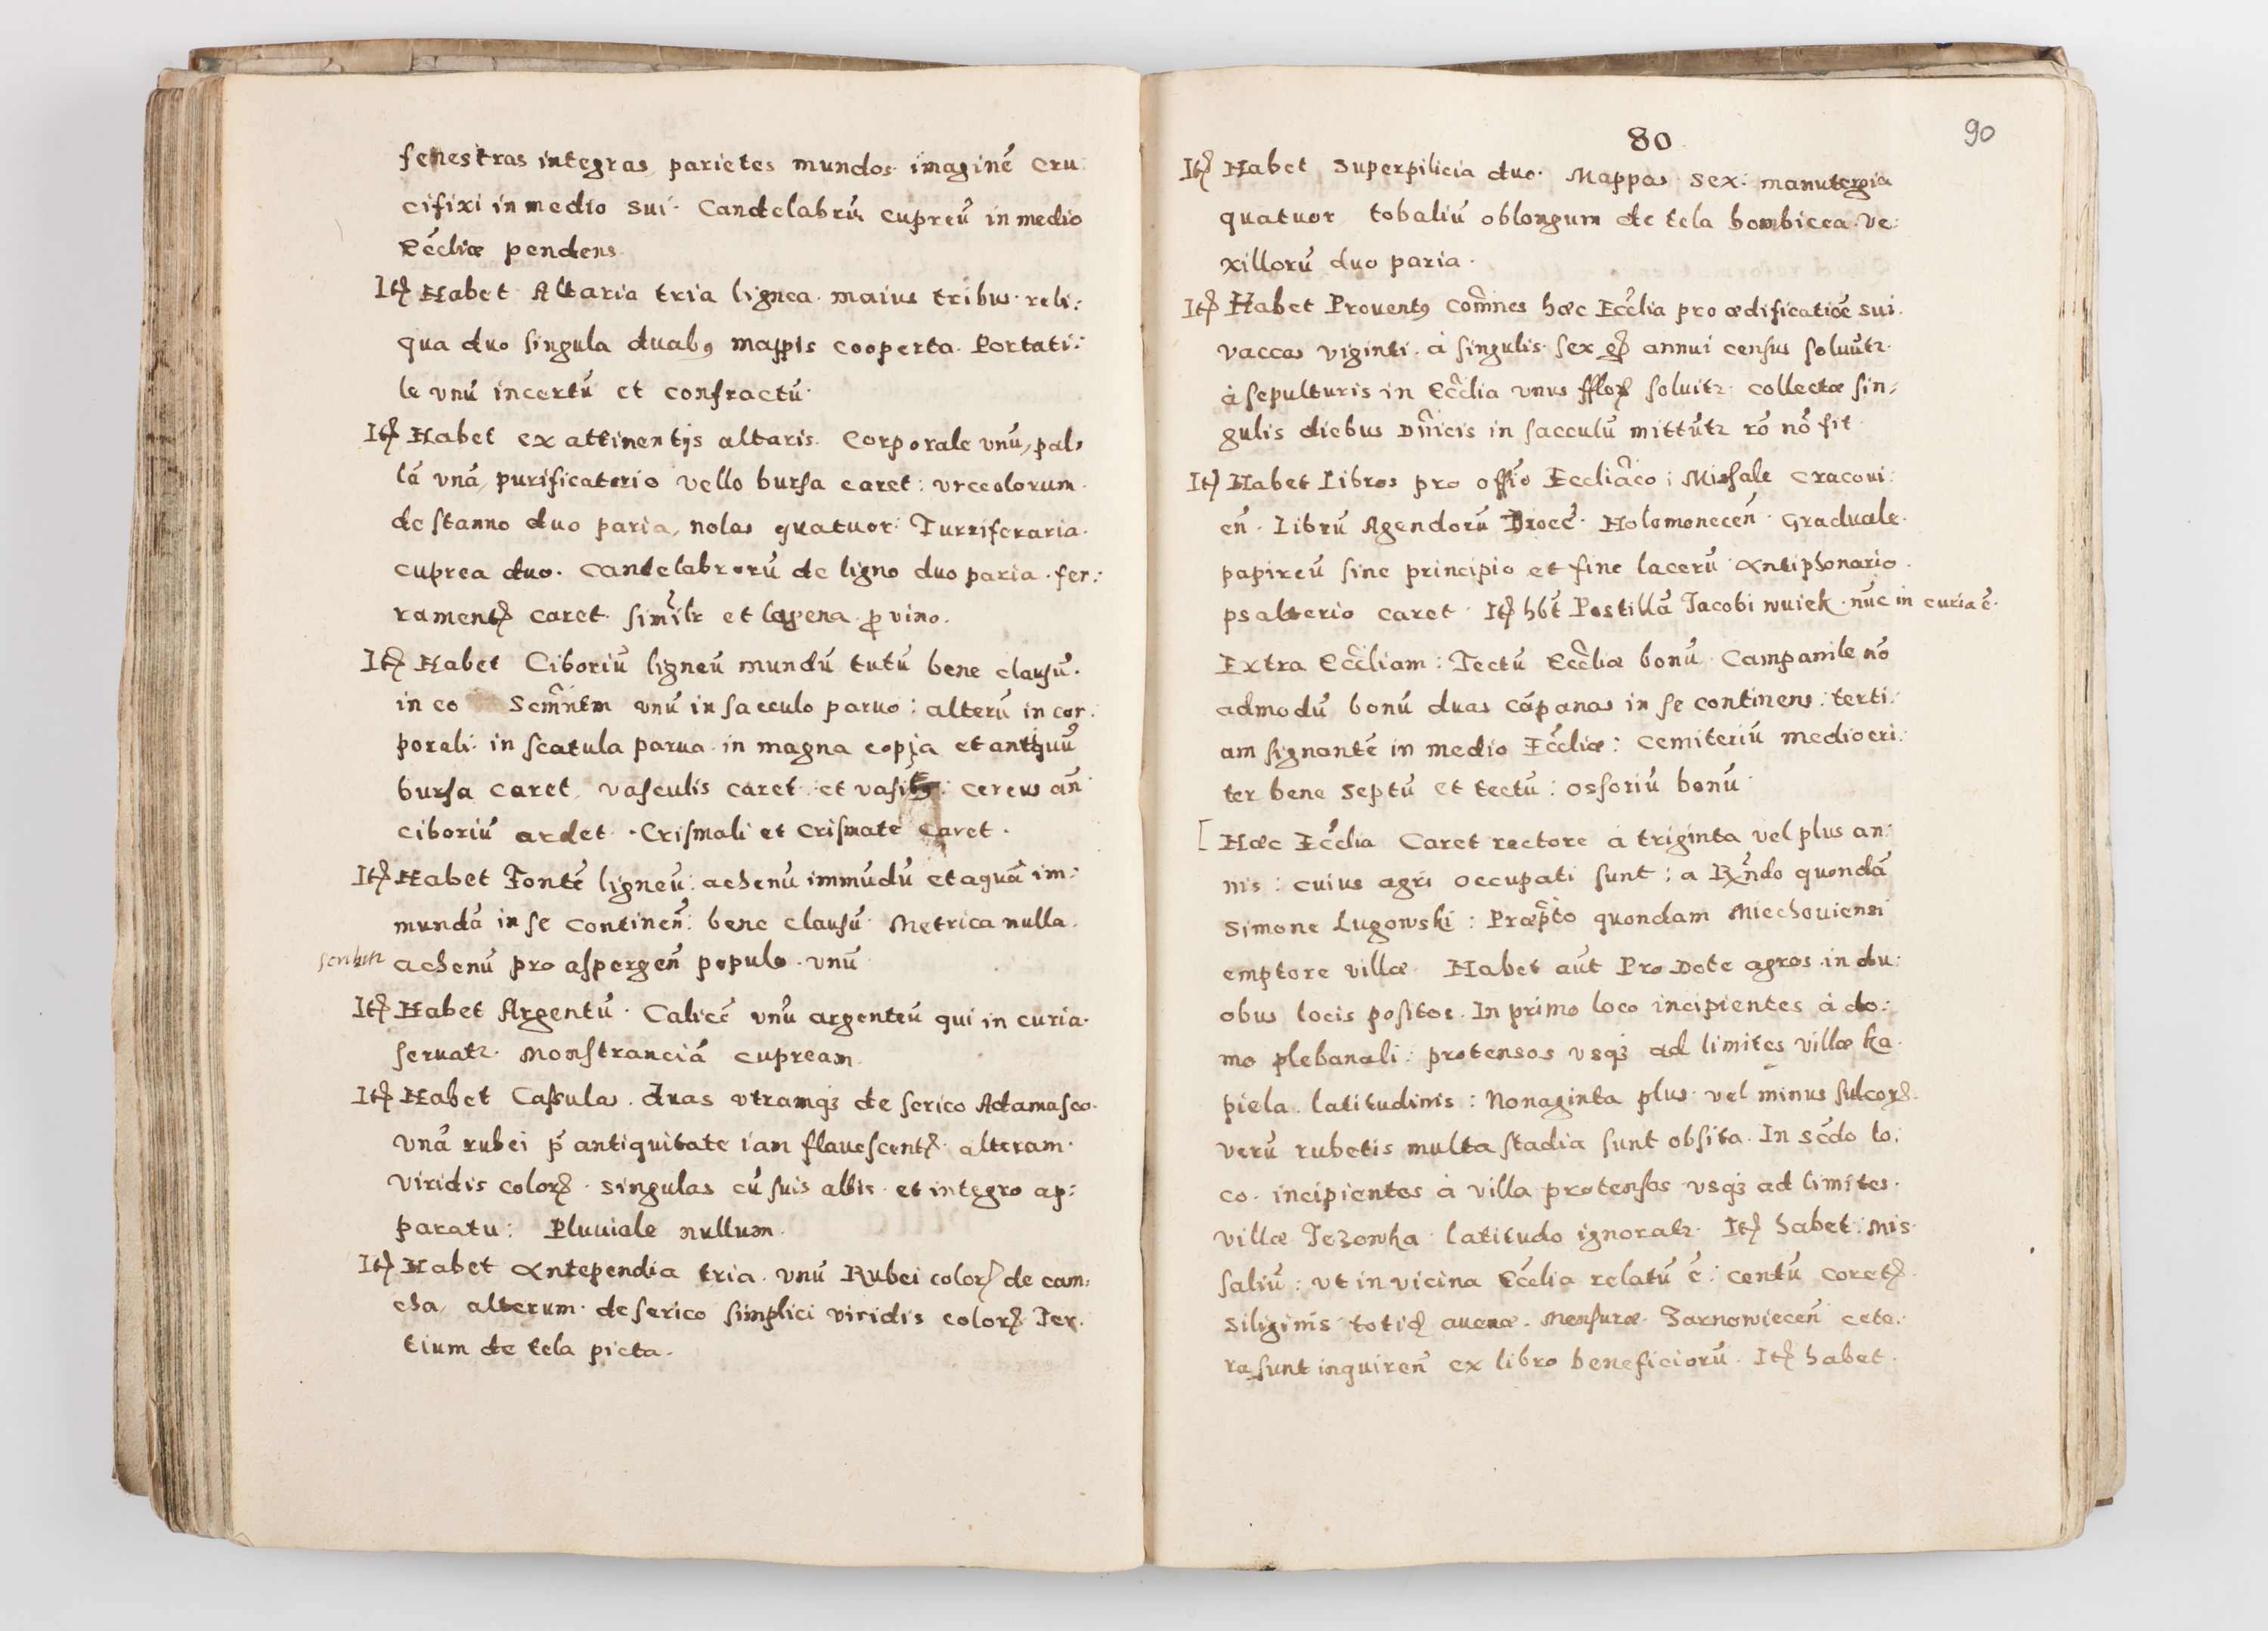 fenestras integras parietes mundos imaginē cru:
cifixi in medio sui. Candelabrū cupreū in medio
Eccliæ pendens.
Itē Habet Altaria tria lignea. maius tribus. reli:
qua duo singula duabꝫ mappis cooperta. Portati:
le vnū incertū et confractū.
Itē Habet ex attinentijs altaris. Corporale vnū, pal,
lā vnā, purificatorio vello bursa caret: vrceolorum.
de stanno duo paria, nolas quatuor: Turriferaria.
cuprea duo. Candelabrorū de ligno duo paria. fer:
ramentꝭ caret. similr et lagena ꝓ vino.
Itē Habet Ciboriū ligneū mundū tutū bene clausū.
in eo Scm̄ntm vnū in sacculo paruo: alterū in cor.
porali: in scatula parua. in magna copia et antiquū
bursa caret, vasculis caret. et vasibꝫ: cereus an̄
ciboriū ardet. Crismali et crismate caret.
Itē Habet Fontē ligneū: ahenū immūdū et aquā im:
mundā in se continen̄: bene clausū. Metrica nulla.
scribitr
achenū pro aspergen̄ populo. vnū
Itē Habet Argentū. Calicē vnū argenteū qui in curia.
seruatr. Monstranciā cupream.
Itē Habet Cassulas. duas vtramqꝫ de serico Adamasco.
vnā rubei p̄ antiquitate iam flauescentꝭ. alteram.
viridis colorꝭ. singulas cū suis albis. et integro ap:
paratu: Pluuiale nullum.
Itē Habet Antependia tria. vnū Rubei colorꝭ de cam:
cha, alterum. de serico simplici viridis colorꝭ Ter.
tium de tela picta.
80
90
Itē Habet Superpilicia duo. Mappas sex: manutergia
quatuor tobaliū oblongum de tela bombicea. Ve:
xillorū duo paria.
Itē Habet Prouentꝫ com̄nes hæc Ecclia pro ædificatiōe sui.
vaccas viginti. à singulis. sex annui census soluūtr.
à sepulturis in Ecclia vnus fflor̄ soluitr. collectæ sin,
gulis diebus Dn̄icis in sacculū mittūtr rō nō fit.
Itē Habet Libros pro offio Eccliaco: Missale Cracoui:
en̄. Librū Agendorū Diocē. Holomonecen̄. Graduale.
papireū sine principio et fine lacerū Antiphonario.
psalterio caret. Itē hb̄t Postillā Jacobi wuiek. nūc in curia ē.
Extra Eccliam: Tectū Eccliæ bonū. Campanile nō
admodū bonū duas cāpanas in se continens: terti:
am signantē in medio Eccliæ: Cemiteriū mediocri:
ter bene septū et tectū: ossoriū bonū.
[ Hæc Ecclia Caret rectore à triginta vel plus an:
nis: cuius agri occupati sunt: a Rn̄do quondā
Simone Lugowski: Præpto quondam Miechouiensi
emptore villæ. Habet aūt Pro Dote agros in du:
obus locis positos. In primo loco incipientes à do:
mo plebanali: protensos vsqꝫ ad limites villæ Ka.
piela. latitudinis: Nonaginta plus. vel minus sulcorꝭ.
verū rubetis multa stadia sunt obsita. In scd̄o lo:
co. incipientes à villa protensos vsqꝫ ad limites.
villæ Jezowka latitudo ignoratr. Itē habet: Mis.
saliū: vt in vicina Ecclia relatū ē: centū coretꝭ.
siliginis totiꝺ auenæ. Mensuræ. Zarnowiecen̄ cete:
ra sunt inquiren̄ ex libro beneficiorū. Itē habet.